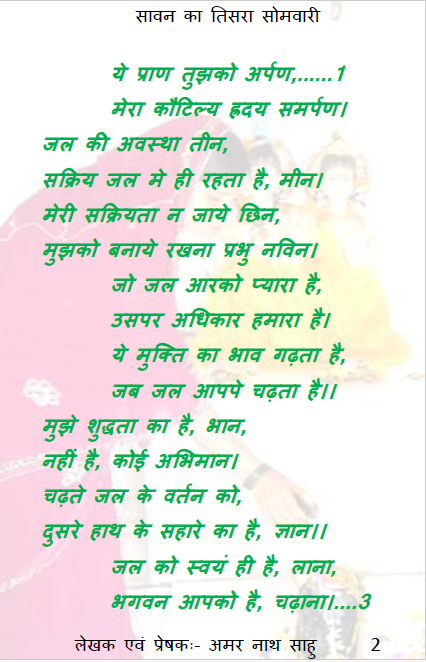 सावन का तिसरा सोमवारी
ये प्राण तुझको अर्पण,......1
मेरा कौटिल्य ह्रदय समर्पण।
जल की अवस्था तीन,
सक्रिय जल मे ही रहता है, मीन।
मेरी सक्रियता न जाये छिन,
मुझको बनाये रखना प्रभु नविन।
जो जल आरको प्यारा है,
उसपर अधिकार हमारा है।
ये मुक्ति का भाव गढ़ता है,
जब जल आपपे चढ़ता है।।
मुझे शुद्धता का है, भान,
नहीं है, कोई अभिमान।
चढ़ते जल के वर्तन को,
दुसरे हाथ के सहारे का है, ज्ञान।।
जल को स्वयं ही है, लाना,
भगवन आपको है, चढ़ाना।....3
लेखक एवं प्रेषकः- अमर नाथ साहु 2